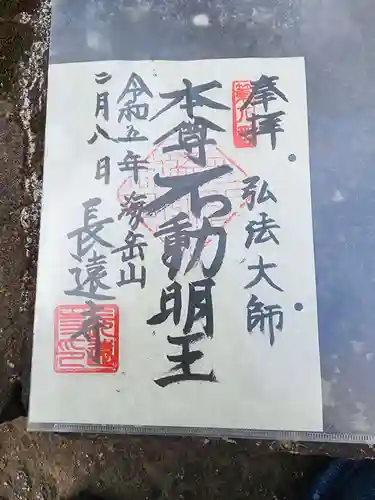 奉拝
弘法大師
本尊不動明王
令和五年
海岳山
二月八日
長遠寺